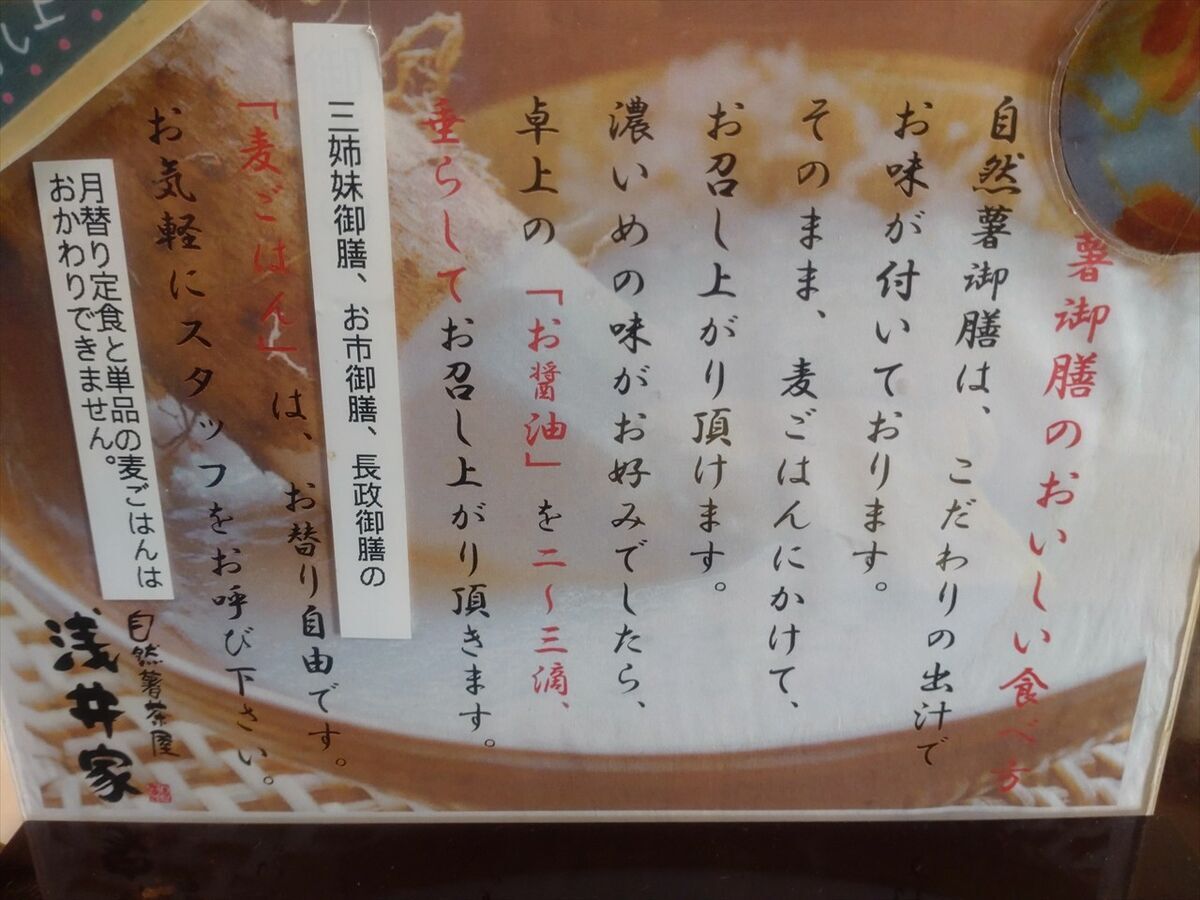 薯御膳のおいしい食べ方
自然薯御膳は、こだわりの出汁で
お味が付いております。
そのまま、麦ごはんにかけて、
お召し上がり頂けます。
濃いめの味がお好みでしたら、
卓上の「お醤油」を二～三滴、
垂らしてお召し上がり頂きます。
三姉妹御膳、お市御膳、長政御膳の
「麦ごはん」は、お替り自由です。
お気軽にスタッフをお呼び下さい。
月替り定食と単品の麦ごはんは
おかわりできません。
自然薯茶屋
浅井家